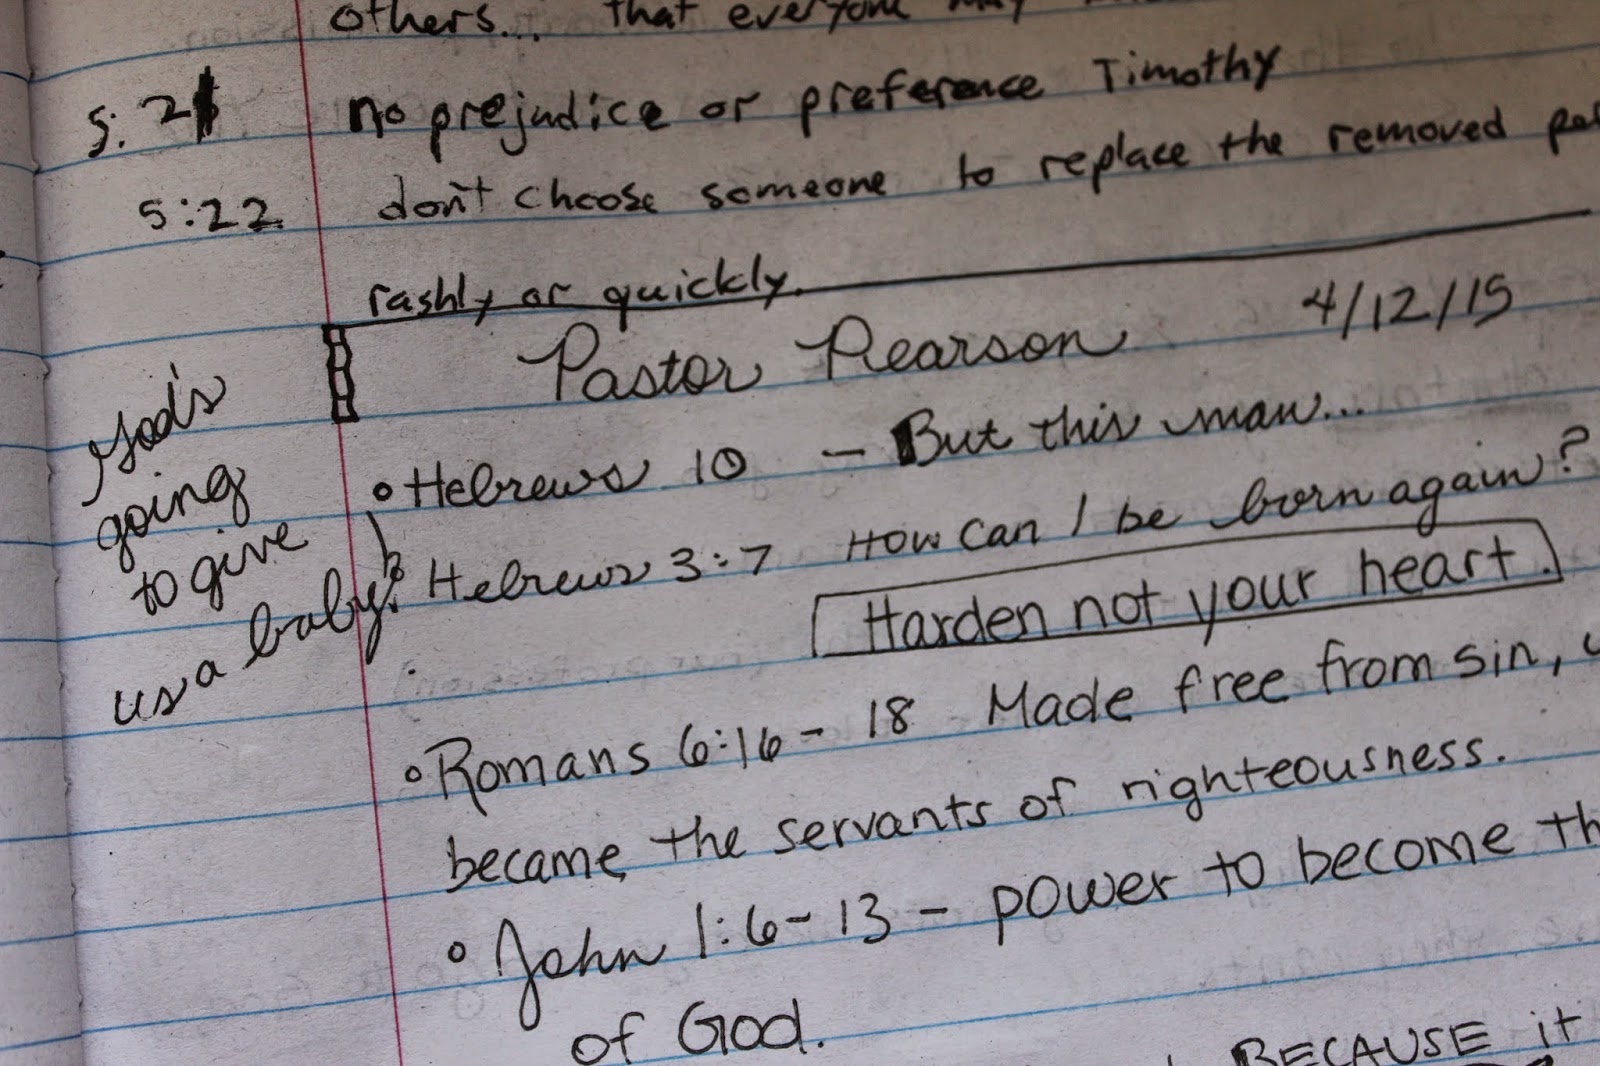 others... that everyone may
5:21 no prejudice or preference Timothy
5:22 don't choose someone to replace the removed
rashly or quickly.
Pastor Pearson 4/12/15
God's
going
to give
us a baby!
Hebrews 10 - But this man...
Hebrews 3:7 How can I be born again?
Harden not your heart.
Romans 6:16-18 Made free from sin,
became the servants of righteousness.
John 1:6-13 - power to become
of God.
BECAUSE it